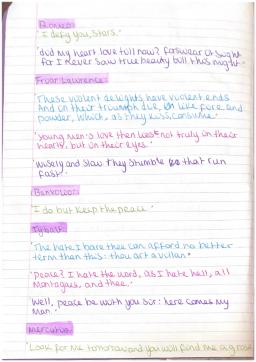 Romeo:
'I defy you, stars.'
'did my heart love till now? forswear it sight
for I never saw true beauty till this night.'
Friar Lawrence:
'These violent delights have violent ends
And in their triumph die, like fire and
powder, which, as they kiss, consume.'
'young men's love then lies not truly in their
hearts, but in their eyes.'
'wisely and slow they stumble that run
fast.'
Benvolio:
'I do but keep the peace.'
Tybalt:
'The hate I bare thee can afford no better
term than this: thou art a villan.'
'peace? I hate the word, as I hate hell, all
Montagues, and thee.'
'Well, peace be with you sir: here comes my
man.'
Mercutio:
'Look for me tomorrow and you will find me a grave